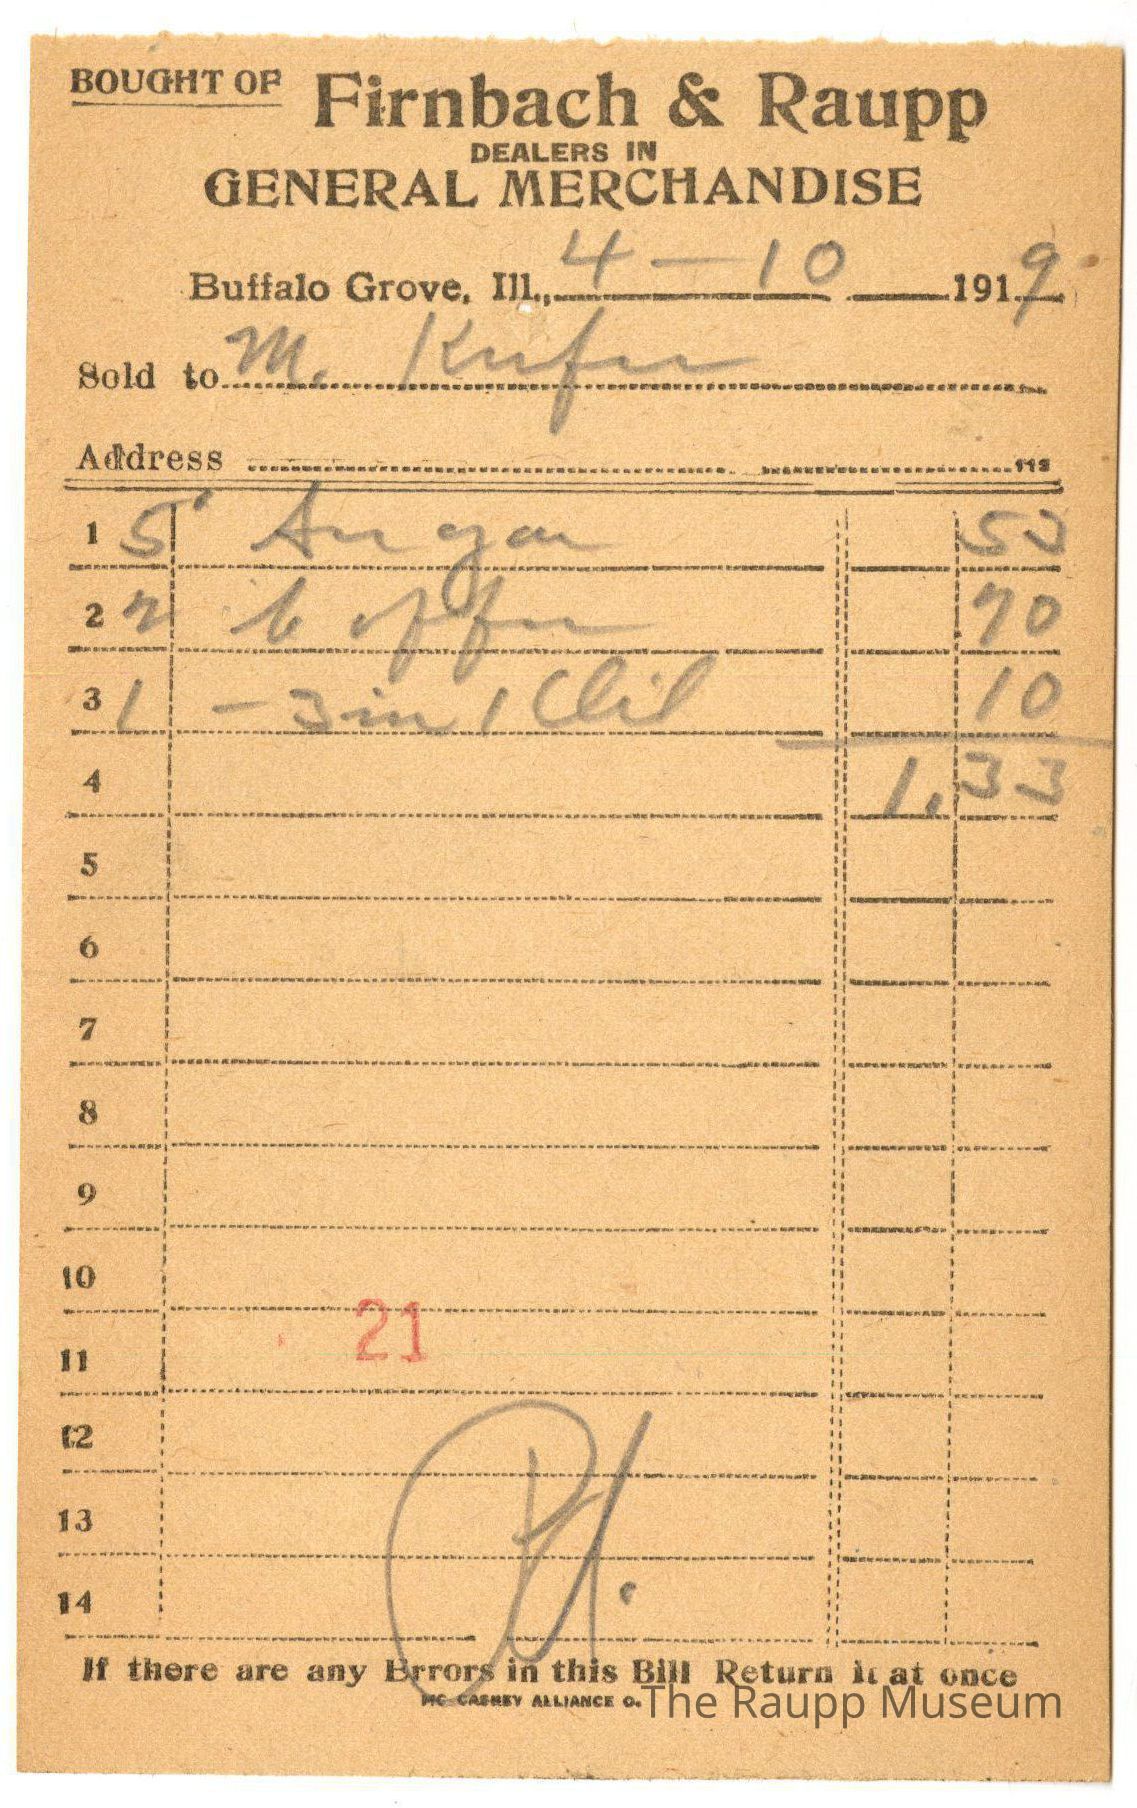 BOUGHT OF Firnbach & Raupp
DEALERS IN
GENERAL MERCHANDISE
Buffalo Grove, Ill., 4 - 10 1919
Sold to M. Kufer
Address 113
1 5 Sugar 53
2 2 lb Coffee 70
3 1 - 3 in 1 Oil 10
4 1.33
5
6
7
8
9
10
21
11
12
13
14
Pd.
If there are any Errors in this Bill Return it at once
MC CASKEY ALLIANCE O.
The Raupp Museum